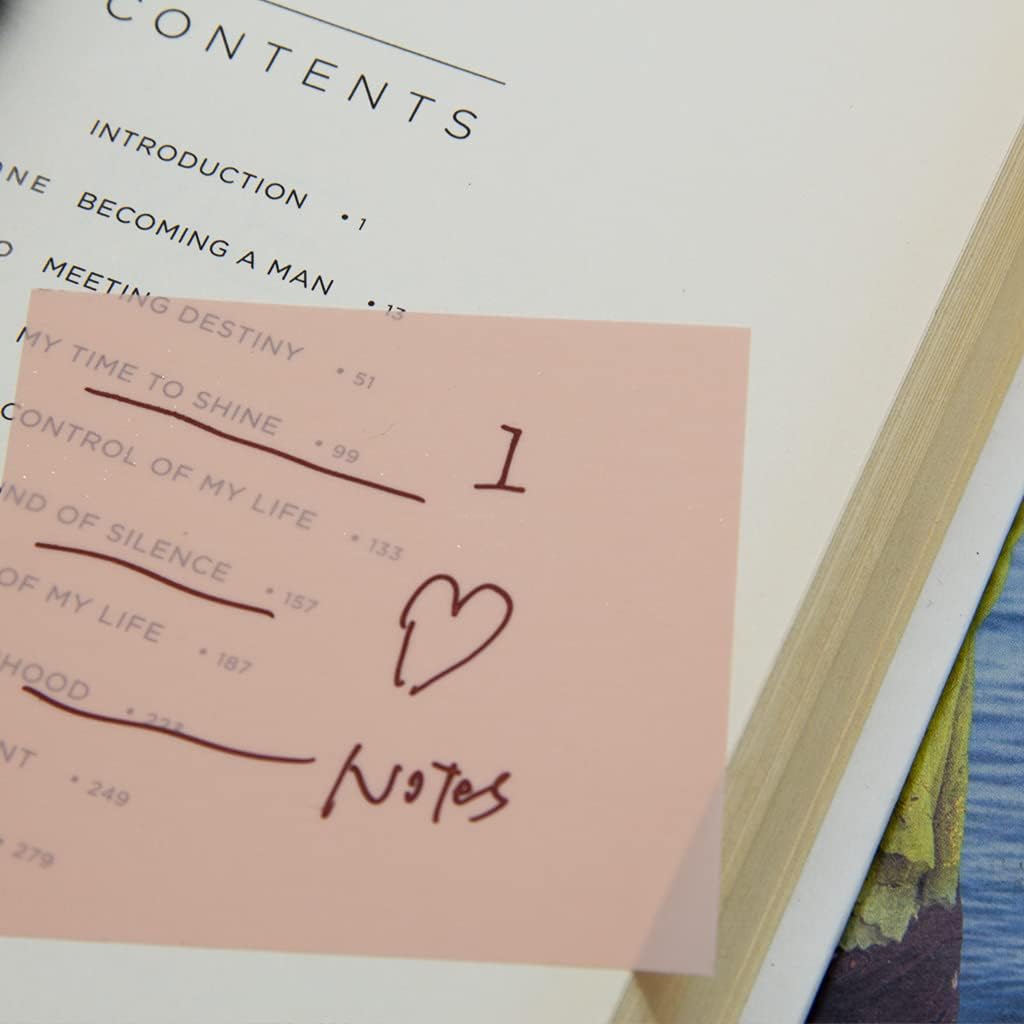 CONTENTS
INTRODUCTION • 1
ONE BECOMING A MAN • 13
O MEETING DESTINY • 51
MY TIME TO SHINE • 99
CONTROL OF MY LIFE • 133
1
ND OF SILENCE • 157
OF MY LIFE • 187
♡
HOOD • 223
NT • 249
Notes
• 279